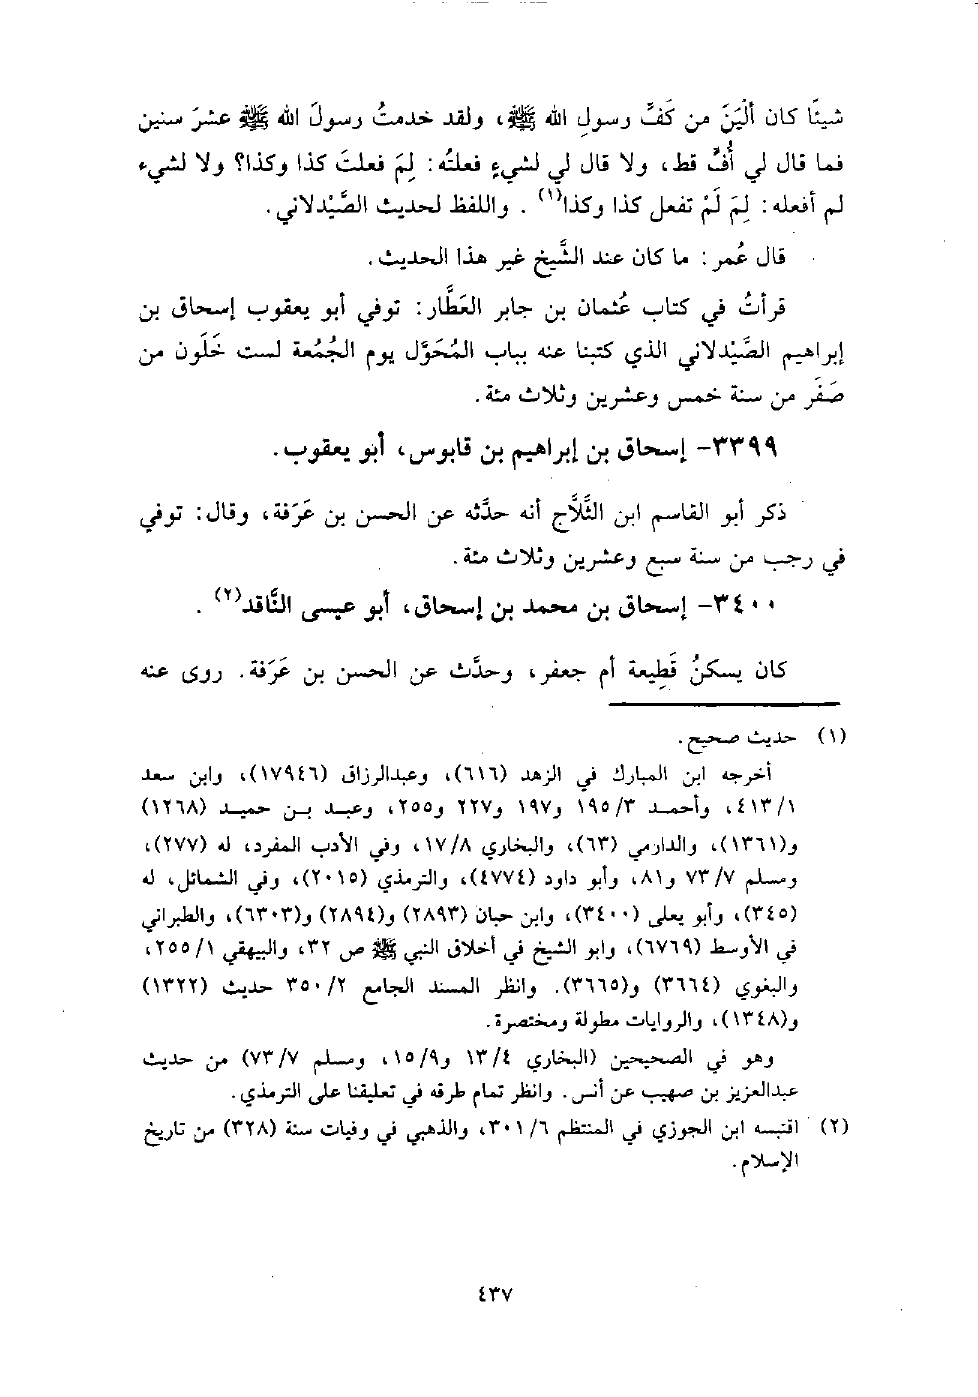 شيئًا كان ألْيَنَ من كَفِّ رسولِ الله ﷺ، ولقد خدمتُ رسولَ الله ﷺ عشرَ سنين
فما قال لي أُفٍّ قط، ولا قال لي لشيءٍ فعلتُه: لِمَ فعلتَ كذا وكذا؟ ولا لشيء
لم أفعله: لِمَ لَمْ تفعل كذا وكذا(١) . واللفظ لحديث الصَّيْدلاني.
قال عُمر: ما كان عند الشَّيخ غير هذا الحديث.
قرأتُ في كتاب عُثمان بن جابر العَطَّار: توفي أبو يعقوب إسحاق بن
إبراهيم الصَّيْدلاني الذي كتبنا عنه بباب المُحَوَّل يوم الجُمُعة لست خَلَون من
صَفَر من سنة خمس وعشرين وثلاث مئة.
٣٣٩٩- إسحاق بن إبراهيم بن قابوس، أبو يعقوب.
ذكر أبو القاسم ابن الثَّلَّاج أنه حدَّثه عن الحسن بن عَرَفة، وقال: توفي
في رجب من سنة سبع وعشرين وثلاث مئة.
٣٤٠٠- إسحاق بن محمد بن إسحاق، أبو عيسى النَّاقد(٢) .
كان يسكنُ قَطِيعة أم جعفر، وحدَّث عن الحسن بن عَرَفة. روى عنه
(١) حديث صحيح.
أخرجه ابن المبارك في الزهد (٦١٦)، وعبدالرزاق (١٧٩٤٦)، وابن سعد
٤١٣/١، وأحمد ١٩٥/٣ و١٩٧ و٢٢٧ و٢٥٥، وعبد بن حميد (١٢٦٨)
و(١٣٦١)، والدارمي (٦٣)، والبخاري ١٧/٨، وفي الأدب المفرد، له (٢٧٧)،
ومسلم ٧٣/٧ و٨١، وأبو داود (٤٧٧٤)، والترمذي (٢٠١٥)، وفي الشمائل، له
(٣٤٥)، وأبو يعلى (٣٤٠٠)، وابن حبان (٢٨٩٣) و(٢٨٩٤) و(٦٣٠٣)، والطبراني
في الأوسط (٦٧٦٩)، وابو الشيخ في أخلاق النبي ﷺ ص ٣٢، والبيهقي ٢٥٥/١،
والبغوي (٣٦٦٤) و(٣٦٦٥). وانظر المسند الجامع ٣٥٠/٢ حديث (١٣٢٢)
و(١٣٤٨)، والروايات مطولة ومختصرة.
وهو في الصحيحين (البخاري ١٣/٤ و١٥/٩، ومسلم ٧٣/٧) من حديث
عبدالعزيز بن صهيب عن أنس. وانظر تمام طرقه في تعليقنا على الترمذي.
(٢) اقتبسه ابن الجوزي في المنتظم ٣٠١/٦، والذهبي في وفيات سنة (٣٢٨) من تاريخ
الإسلام.
٤٣٧